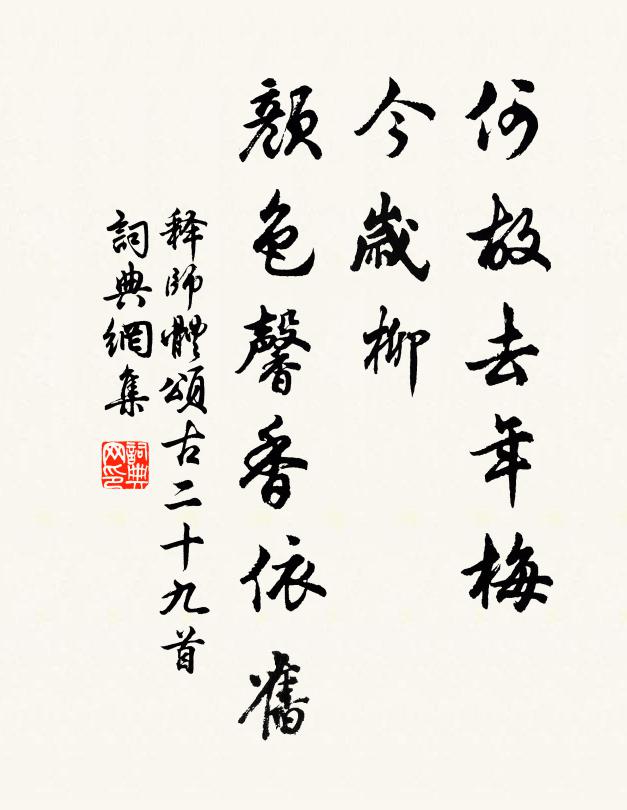 何故去年梅
今歲柳
顏色馨香依舊
释師體頌古二十九首
詞典網集
詞典網印